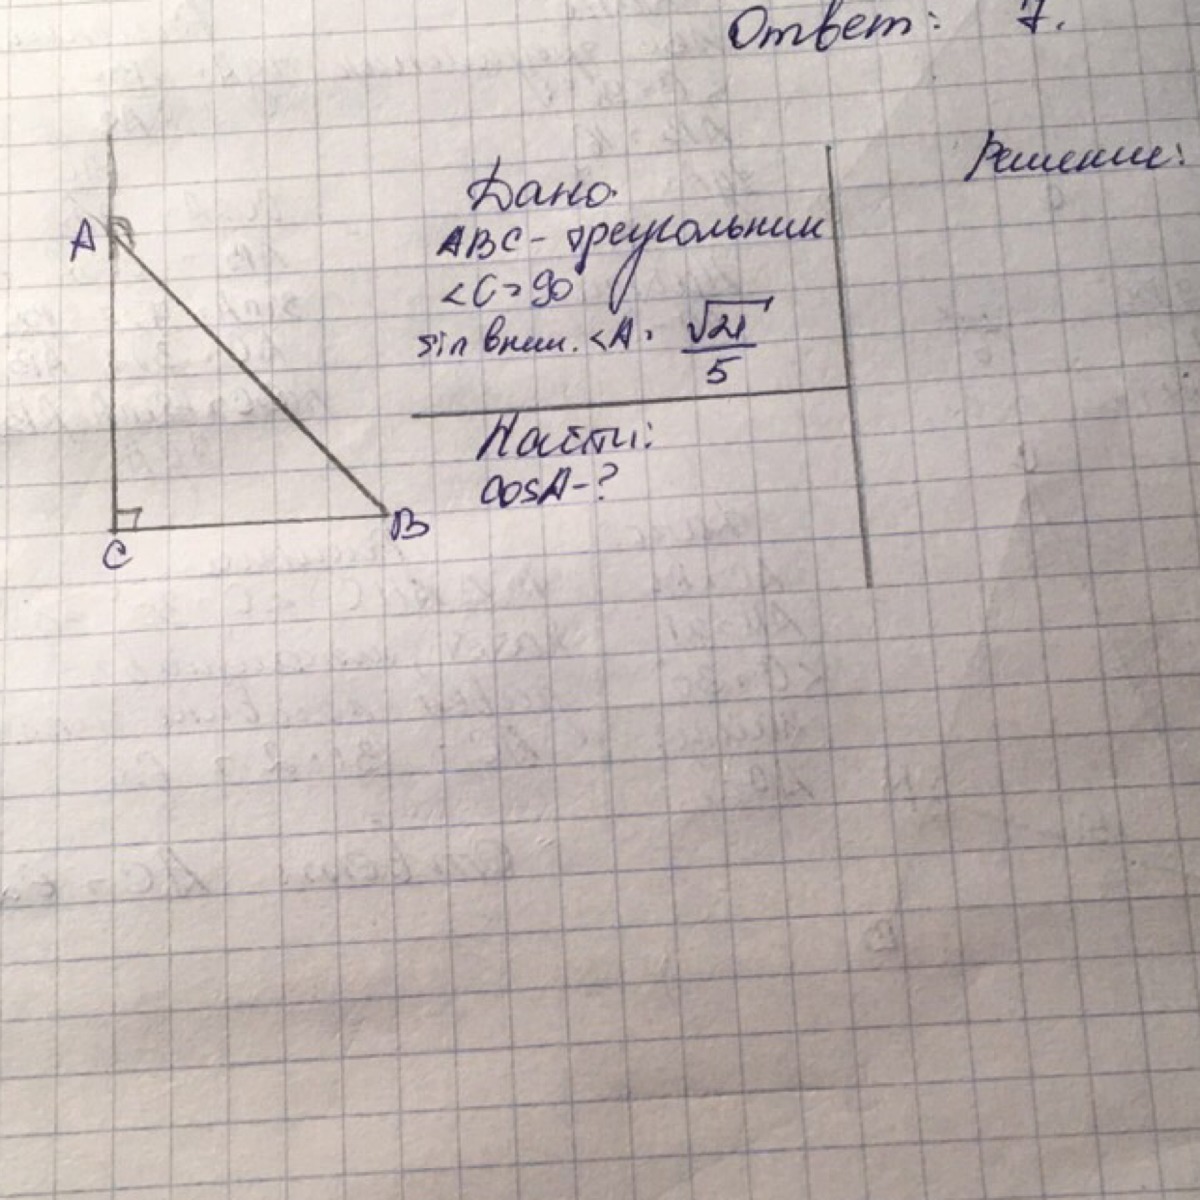 Ответ: 7.
Решение:
Дано:
ABC - треугольник
<C = 90°
sin внеш. <A = √21/5
Найти:
cosA-?
A
C
B